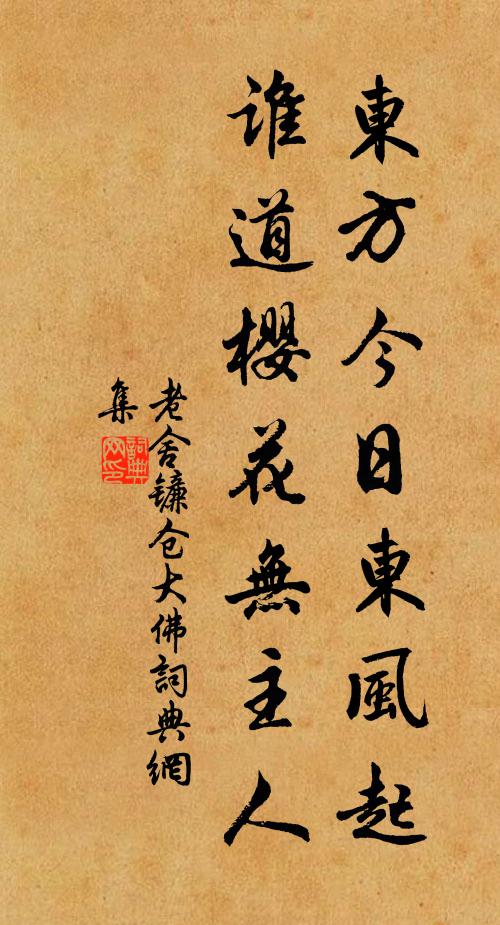 東方今日東風起
誰道櫻花無主人
老舍鐮仓大佛詞典網
集
詞典
网印